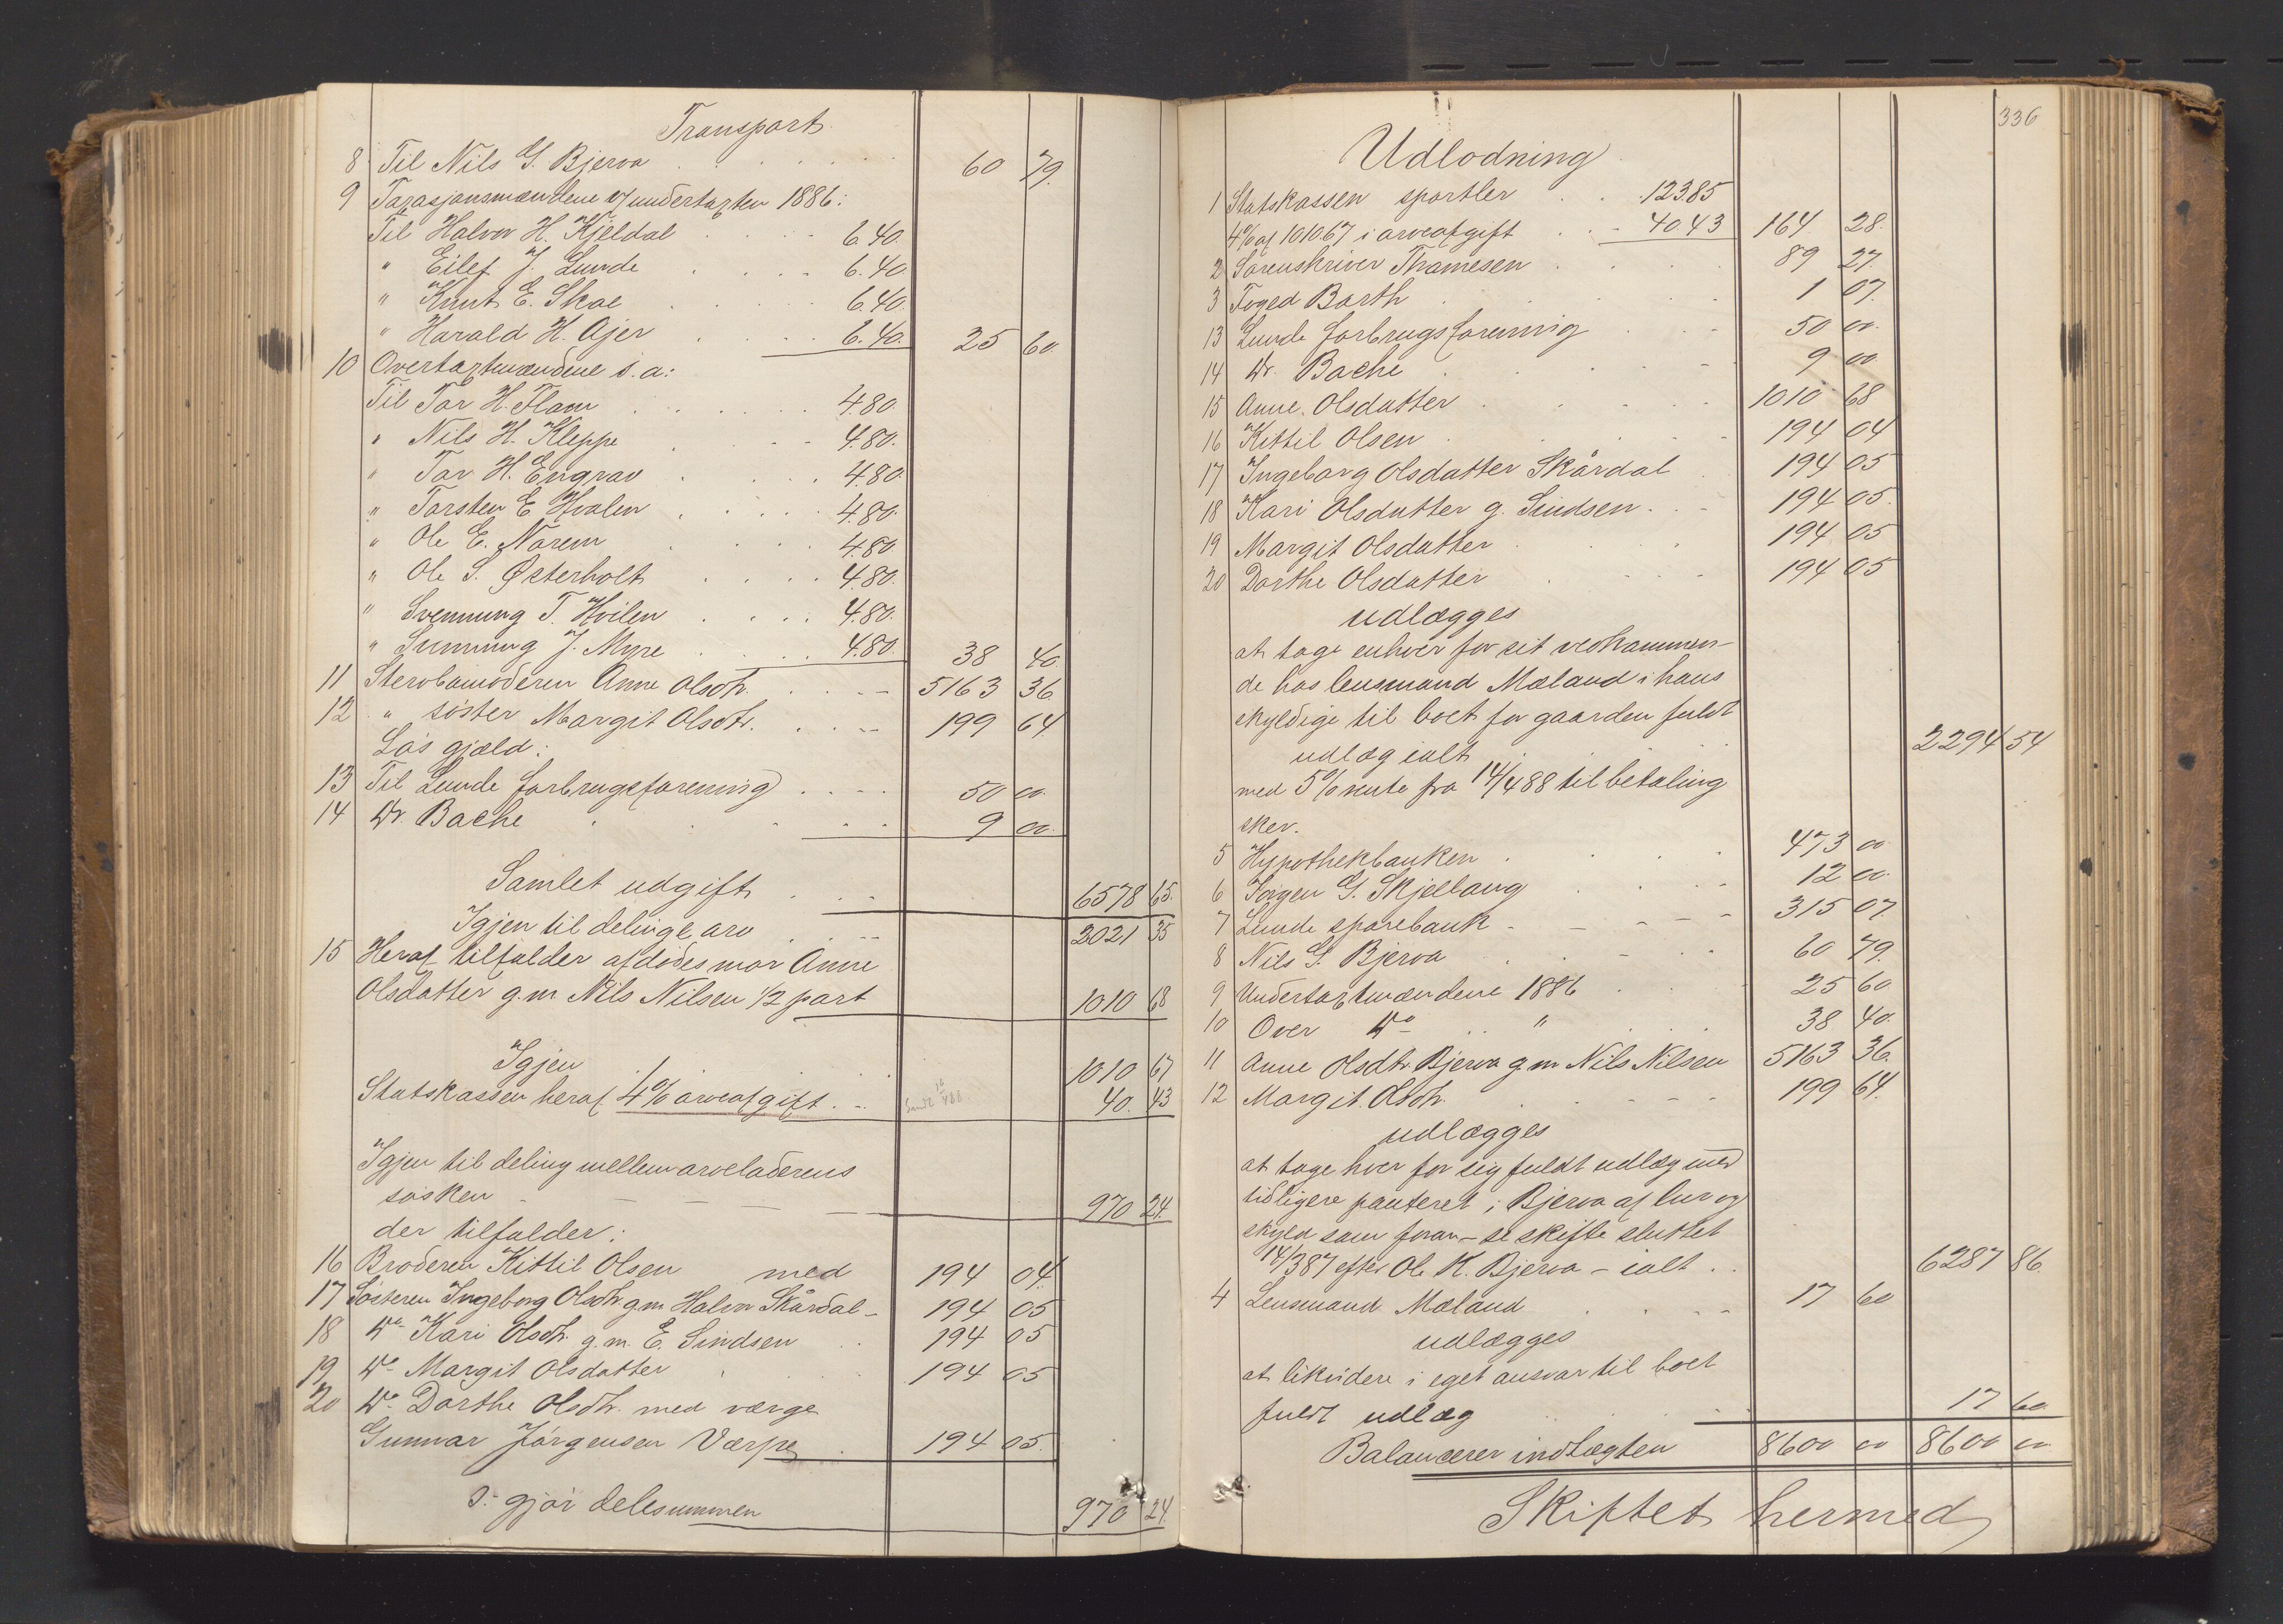 Transport
8 Til Nils G. Bjerva 60 79.
9 Taxasjonsmændene v/ undertaxten 1886:
Til Halvor H. Kjeldal 6.40.
" Eilef J. Lunde 6.40
" Knut E. Skoe 6.40.
" Harald H. Ajer 6.40. 25 60.
10 Overtaxtmændene s. a:
Til Tor H. Flom 4.80.
" Nils H. Kleppe 4.80.
" Tor H. Engrav 4.80
" Torsten E. Hvalen 4.80.
" Ole E. Norem 4.80
" Ole S. Østerholt 4.80.
" Svennung T. Hvilen 4.80.
" Svennung J. Myre 4.80. 38 40.
11 Stervbomoderen Anne Olsdtr. 5163 36
12 " söster Margit Olsdtr. 199 64
Lös gjæld:
13 Til Lunde forbrugsforening 50 00.
14 Dr. Bache 9 00.
Samlet udgift 6578 65.
Igjen til delinge arv 2021 35
15 Heraf tilfalder afdödes mor Anne
Olsdatter g. m Nils Nilsen 1/2 part 1010 68
Igjen 1010 67
Statskassen heraf 4% arveafgift. 40. 43
Igjen til deling mellem arveladerens
sösken 970 24.
der tilfalder:
16 Broderen Kittil Olsen med 194 04.
17 Sösteren Ingeborg Olsdtr g m Halvor Skårdal 194 05
18 Do Kari Olsdtr. g. m. E. Sindsen 194 05
19 Do Margit Olsdatter 194 05
20 Do Dorthe Olsdtr. med værge
Gunnar Jörgensen Værpe 194 05.
s: gjör delesummen 970 24.
336
Udlodning
1 Statskassen sportler 123.85
4% af 1010.67 i arveafgift 40.43 164. 28.
2 Sorenskriver Thomesen 89 27.
3 Foged Barth 1 07.
13 Lunde forbrugsforening 50 00.
14 Dr. Bache 9 00
15 Anne Olsdatter 1010 68
16 Kittil Olsen 194 04
17 Ingeborg Olsdatter Skårdal 194 05
18 Kari Olsdatter g. Sindsen 194 05.
19 Margit Olsdatter 194 05
20 Dorthe Olsdatter 194 05
udlægges
at tage enhver for sit vedkommen-
de hos lensmand Mæland i hans
skyldige til boet for gaarden fuldt
udlæg ialt 2294 54
med 5% rente fra 14/4 88 til betaling
sker.
5 Hypothekbanken 473 00
6 Jörgen G. Skjellaug 12 00.
7 Lunde sparebank 315 07.
8 Nils G. Bjerva 60 79.
9 Undertaxtmændene 1886 25 60
10 Over Do " 38 40.
11 Anne Olsdtr Bjerva g m Nils Nilsen 5163 36.
12 Margit Olsdtr. 199 64.
udlægges
at tage hver for sig fuldt udlæg med
tidligere panteret i Bjerva af lnr og
skyld som foran – se skifte sluttet
14/3 87 efter Ole K. Bjerva – ialt 6287 86.
4 Lensmand Mæland 17 60
udlægges
at likvidere i eget ansvar til boet
fuldt udlæg 17 60.
Balancerer indtægten 8600 00 8600 00
Skiftet hermed